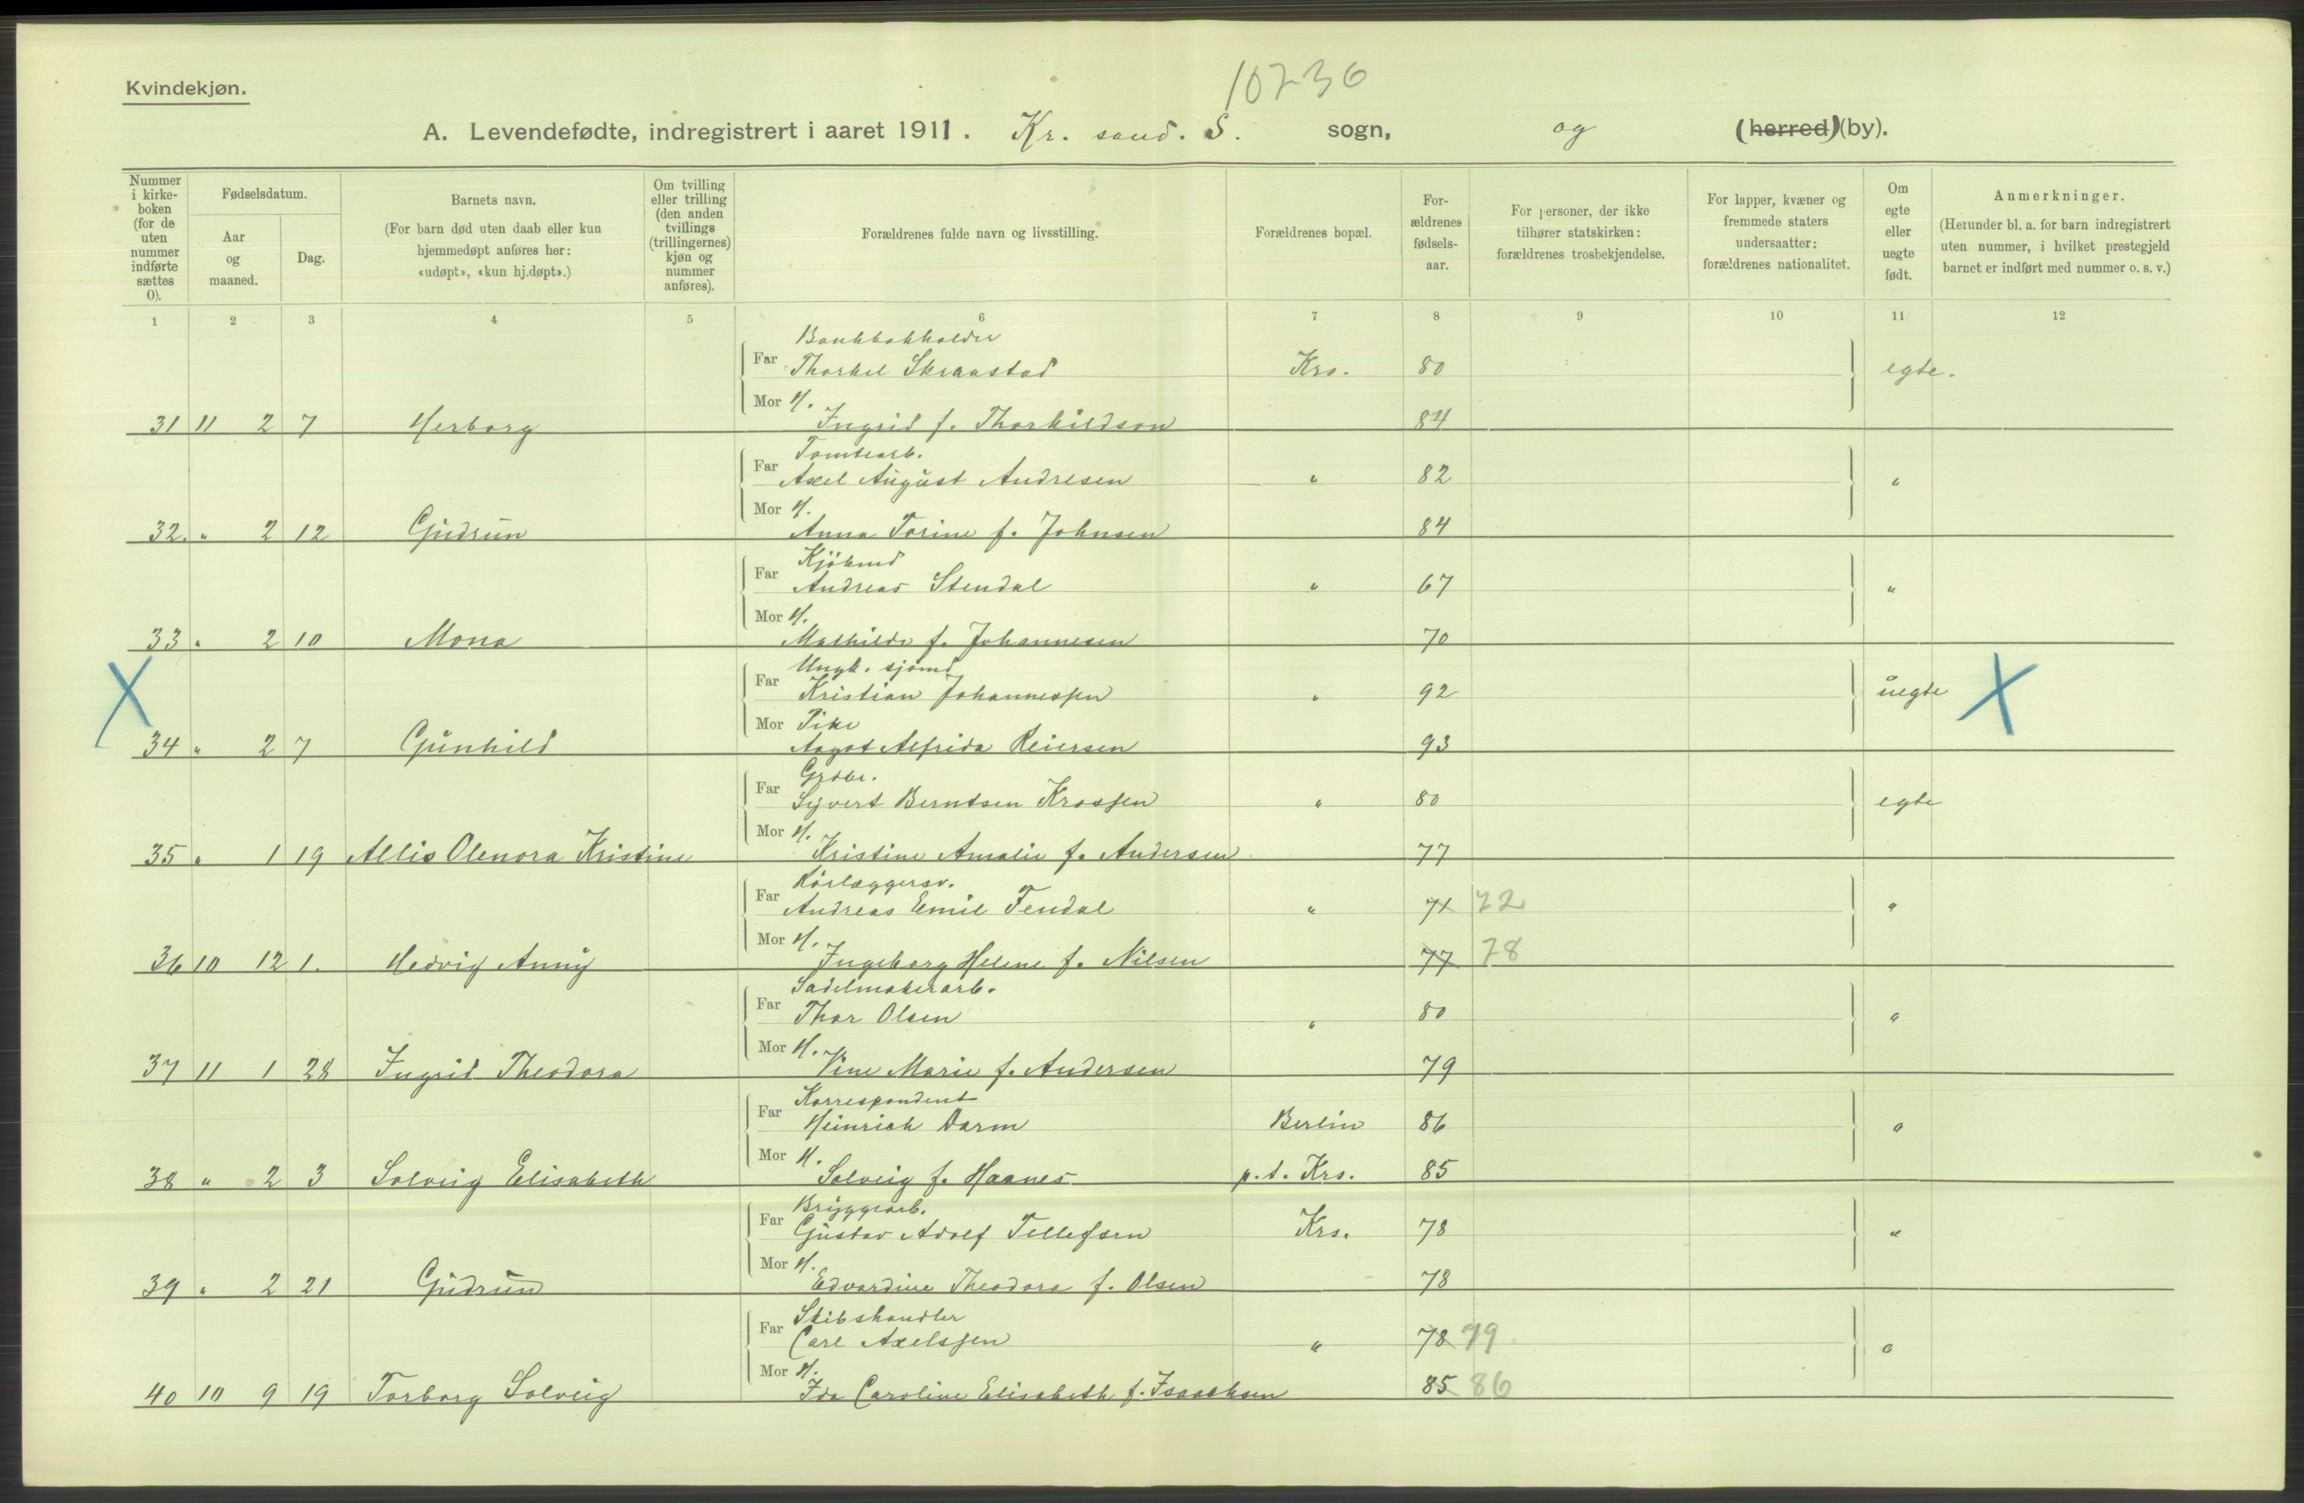 10736
Kvindekjøn.
A. Levendefødte, indregistrert i aaret 1911. Kr. sand. S. sogn, og (herred) (by).
Nummer i kirke-boken (for de uten nummer indførte sættes 0).
Fødselsdatum.
Aar og maaned.
Dag.
Barnets navn.
(For barn død uten daab eller kun hjemmedøpt anføres her: «udøpt», «kun hj.døpt».)
Om tvilling eller trilling (den anden tvillings (trillingernes) kjøn og nummer anføres).
Forældrenes fulde navn og livsstilling.
Forældrenes bopæl.
For-ældrenes fødsels-aar.
For personer, der ikke tilhører statskirken: forældrenes trosbekjendelse.
For lapper, kvæner og fremmede staters undersaatter: forældrenes nationalitet.
Om egte eller uegte født.
Anmerkninger.
(Herunder bl. a. for barn indregistrert uten nummer, i hvilket prestegjeld barnet er indført med nummer o. s. v.)
1 2 3 4 5 6 7 8 9 10 11 12
Bankbokholder
Far Thorkel Skraastad Krs. 80 egte.
Mor H.
31 11 2 7 Herborg Ingrid f. Thorkildson 84
Tomtearb.
Far Axel August Andresen " 82 "
Mor H.
32. " 2 12 Gudrun Anna Torine f. Johnsen 84
Kjöbmd
Far Andreas Stendal " 67 "
Mor H.
33 " 2 10 Mona Mathilde f. Johannesen 70
Ungk. sjömd
Far Kristian Johannessen " 92 uegte
Mor Pike
34 " 2 7 Gunhild Aagot Alfrida Reiersen 93
Grdbr.
Far Syvert Berntsen Krossen " 80 egte
Mor H.
35 " 1 19 Allis Olenora Kristine Kristine Amalie f. Andersen 77
Rörlæggersv.
Far Andreas Emil Tendal " 71 72 "
Mor H.
36 10 12 1. Hedvig Anny Ingeborg Helene f. Nilsen 77 78
Sadelmakerarb.
Far Thor Olsen " 80 "
Mor H.
37 11 1 28 Ingrid Theodora Vine Marie f. Andersen 79
Korrespondent
Far Heinrich Darm Berlin 86 "
Mor H.
38 " 2 3 Solveig Elisabeth Solveig f. Haanes p.t. Krs. 85
Bryggearb.
Far Gustav Adolf Tellefsen Krs. 78 "
Mor H.
39 " 2 21 Gudrun Edvardine Theodora f. Olsen 78
Skibshandler
Far Carl Axelssen " 78 79 "
Mor H.
40 10 9 19 Torborg Solveig Ida Caroline Elisabeth f. Isaachsen 85 86